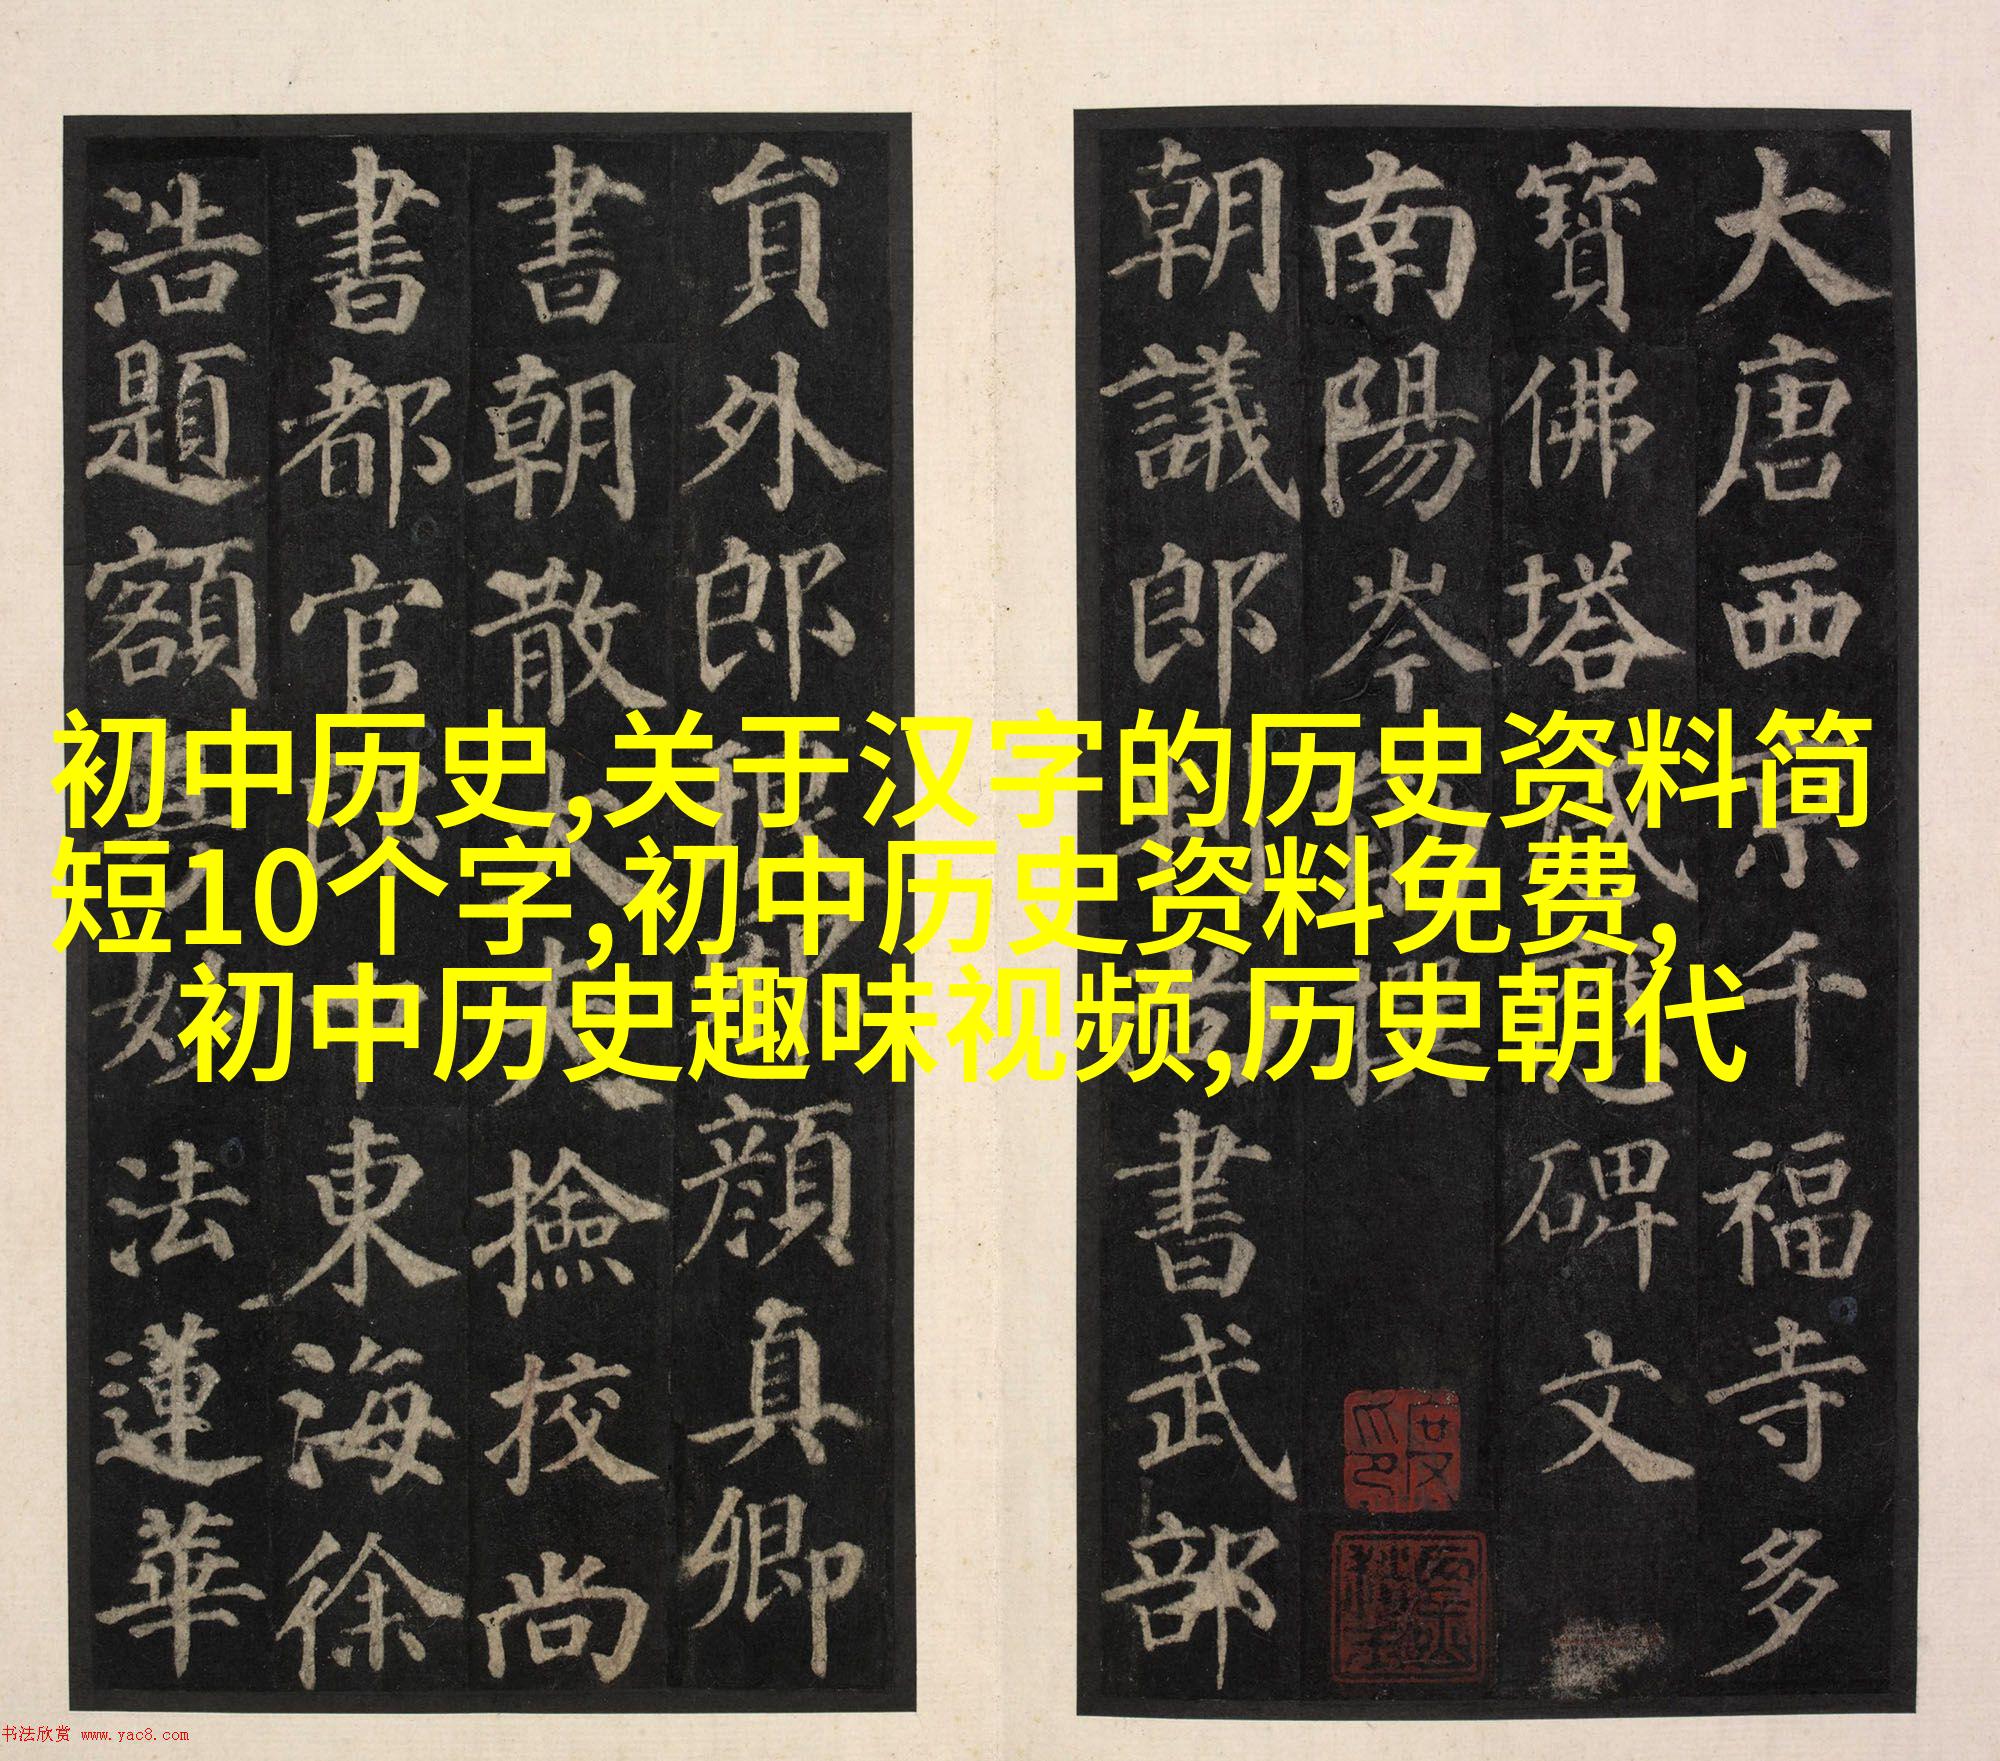 大唐西京千福寺多
寳佛塔感應碑文
南陽岑勛撰
朝議郎判尚書武部
貟外郎琅邪顔真卿
書朝散大夫撿挍尚
書都官郎中東海徐
浩題額
妙法蓮華
初中历史,关于汉字的历史资料简
短10个字,初中历史资料免费,
初中历史趣味视频,历史朝代
书法欣赏 www.yac8.com